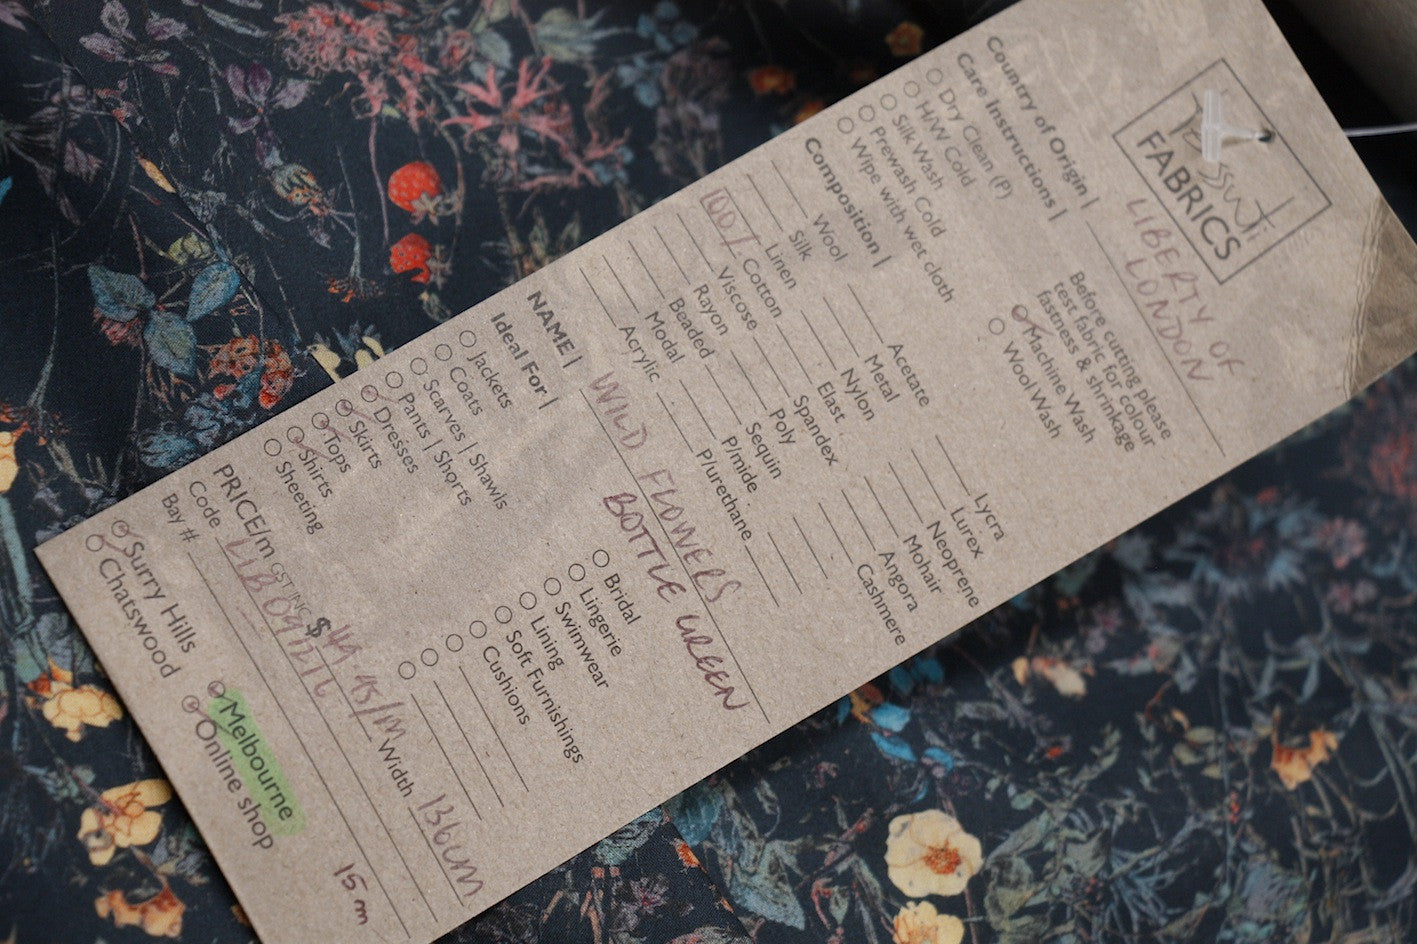 Tessuti
FABRICS
Country of Origin | LIBERTY OF
LONDON
Care Instructions |
Dry Clean (P)
H/W Cold
Silk Wash
Prewash Cold
Wipe with wet cloth
Before cutting please
test fabric for colour
fastness & shrinkage
Machine Wash
Wool Wash
Composition |
Wool
Silk
Linen
100% Cotton
Viscose
Rayon
Beaded
Modal
Acrylic
Acetate
Metal
Nylon
Elast
Spandex
Poly
Sequin
P/mide
P/urethane
Lycra
Lurex
Neoprene
Mohair
Angora
Cashmere
NAME | WILD FLOWERS
BOTTLE GREEN
Ideal For |
Jackets
Coats
Scarves | Shawls
Pants | Shorts
Dresses
Skirts
Tops
Shirts
Sheeting
Bridal
Lingerie
Swimwear
Lining
Soft Furnishings
Cushions
PRICE/m GST INC $ 49.95/m Width 136cm
Code LIB097276
Bay #
Surry Hills
Chatswood
Melbourne
Online shop
15m